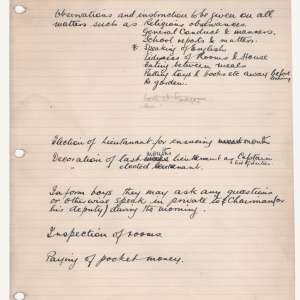 Observations and instruction to be given on all
matters such as Religious observances.
General Conduct & manners.
School reports & matters.
& Speaking of English
Tidyness of Rooms & House
Eating between meals
Putting toys & books etc away before
to garden.
Election of Lieutenant for ensuing month
Decoration of last months Lieutenant as Captain
elected Lieutenant.
Inform boys they may ask any questions
or otherwise speak in private to Chairman (or
his deputy) during the morning.
Inspection of rooms
Paying of pocket money.